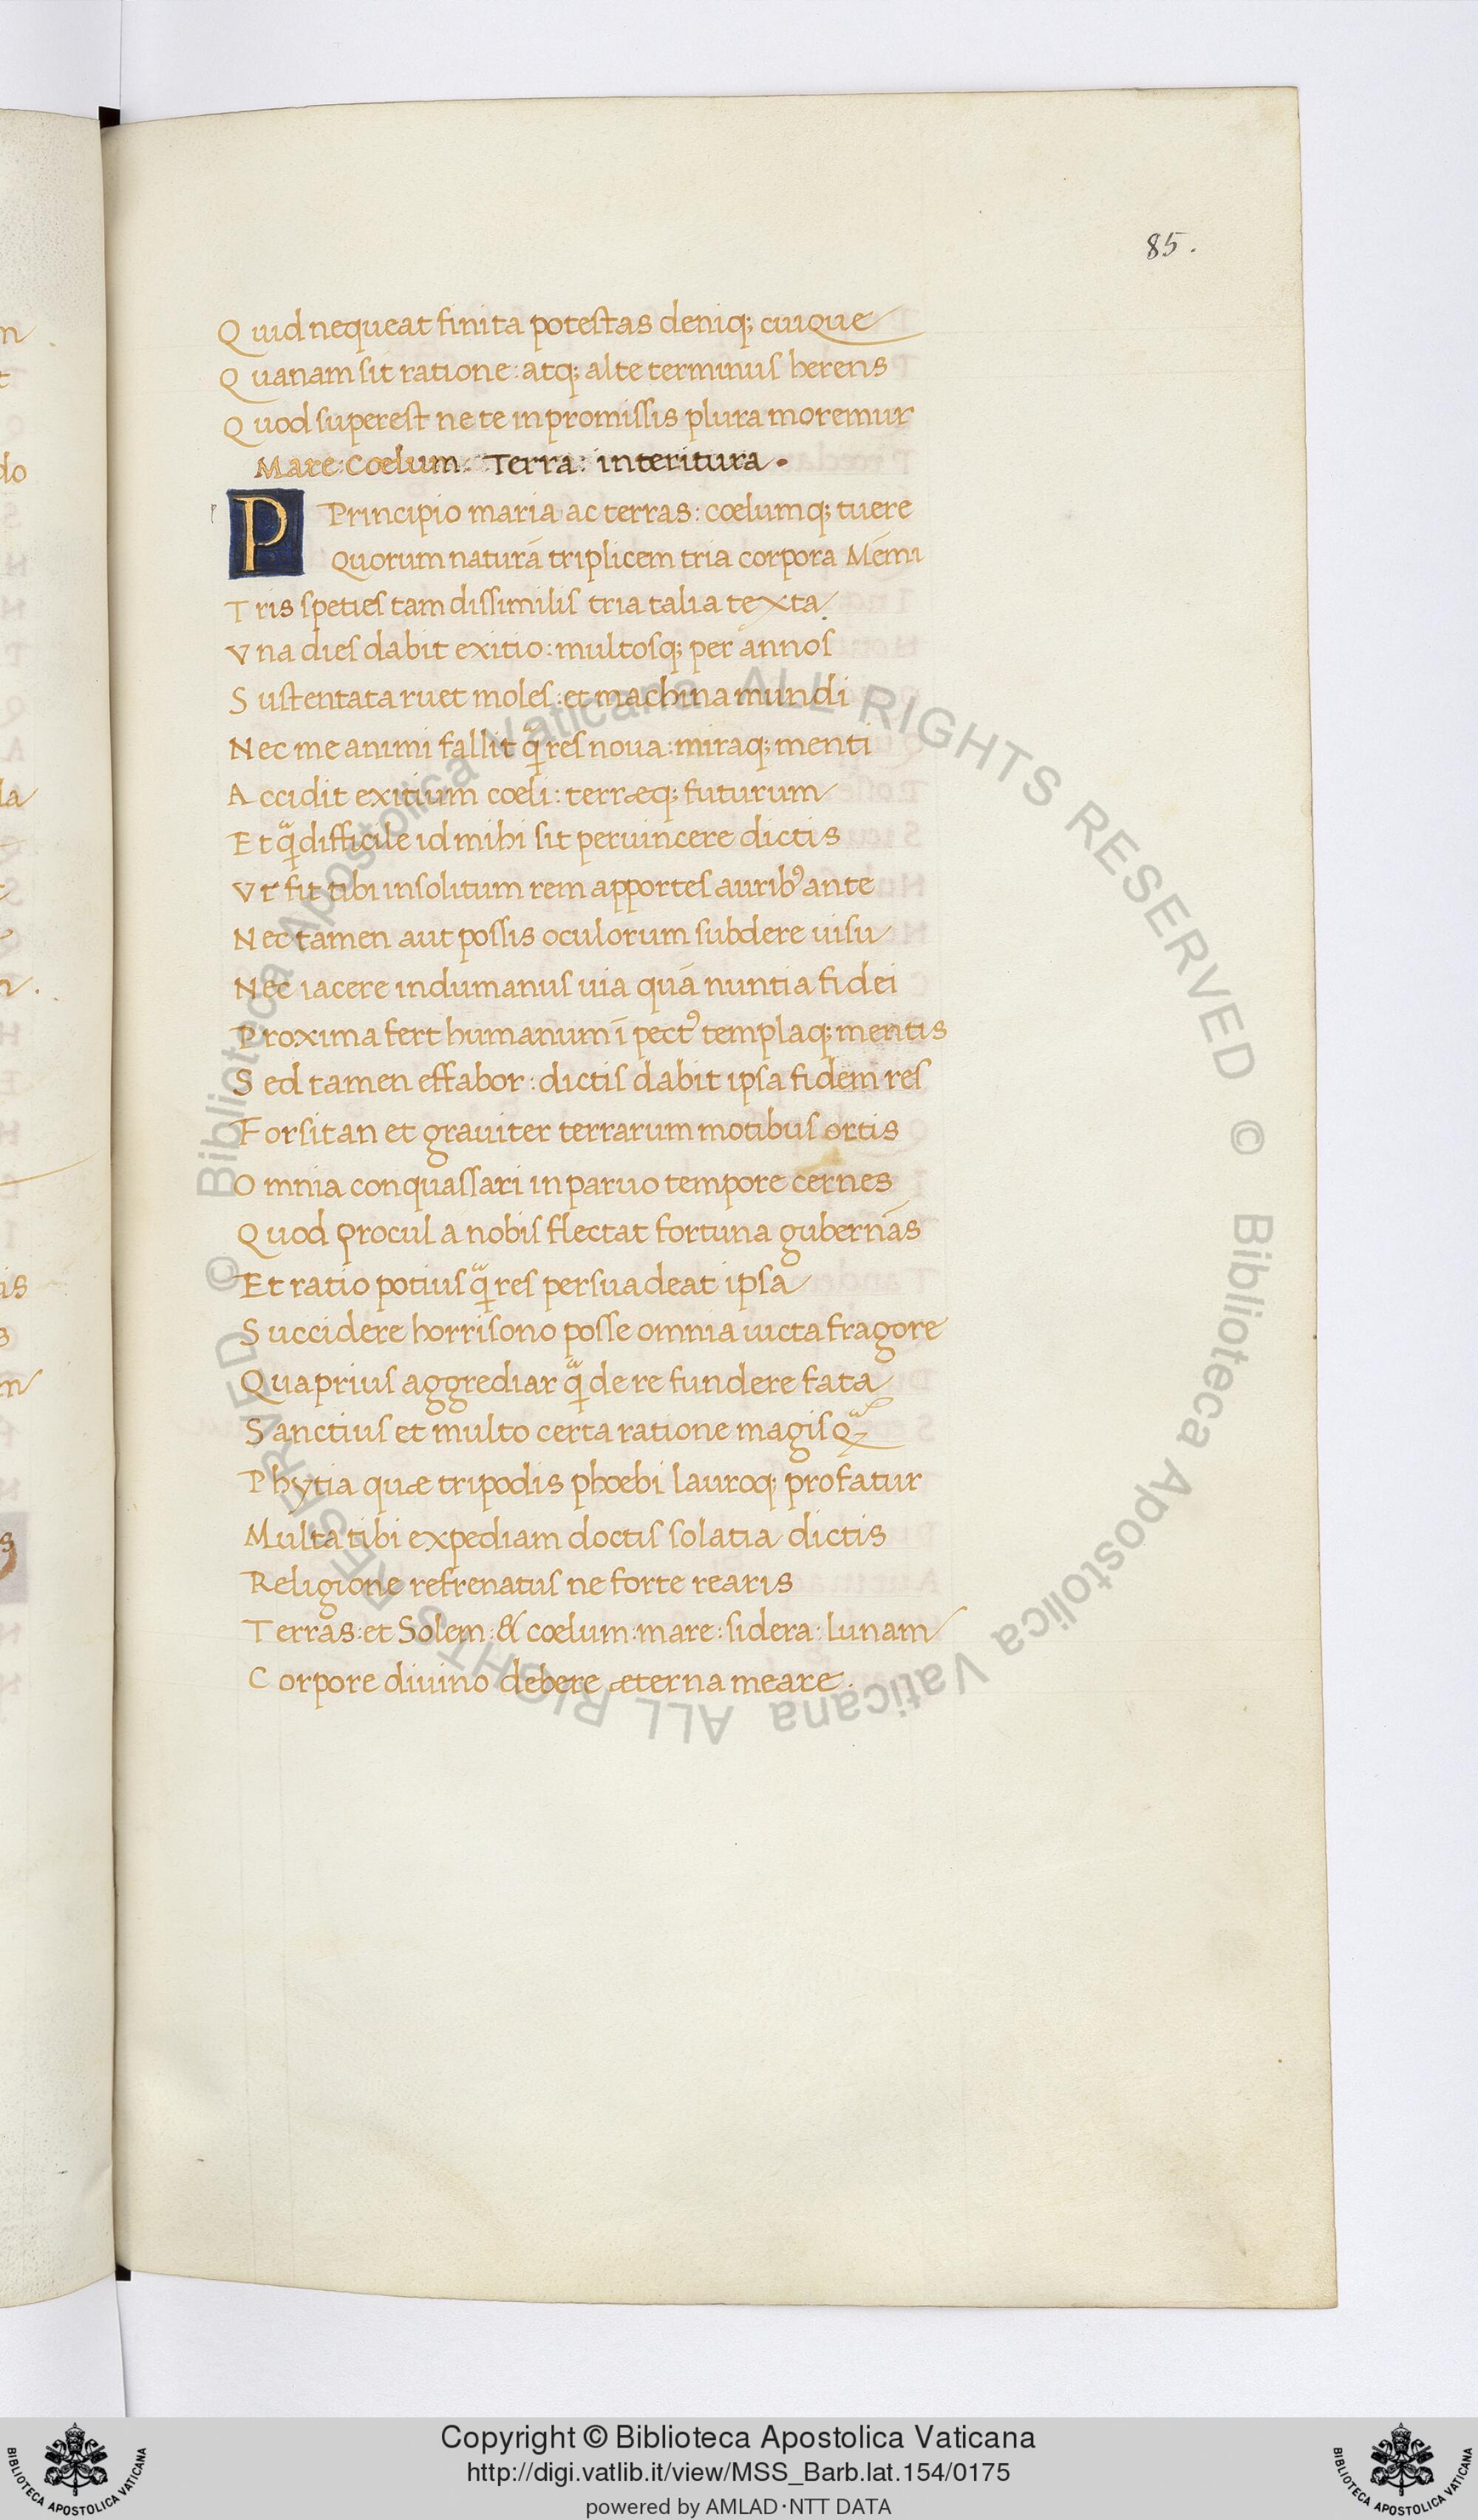 85.
Quid nequeat finita potestas deniq; cuique
Quanam sit ratione: atq; alte terminus herens
Quod superest ne te in promissis plura moremur
Mare: Coelum: Terra: interitura.
P Principio maria ac terras: coelumq; tuere
Quorum naturā triplicem tria corpora Mēmi
Tris speties tam dissimilis tria talia texta
Vna dies dabit exitio: multosq; per annos
Sustentata ruet moles: et machina mundi
Nec me animi fallit qͣ̄ res noua: miraq; menti
Accidit exitium coeli: terræq; futurum
Et qͣ̄ difficile id mihi sit peruincere dictis
Vt fit tibi insolitum rem apportes auribꝰ ante
Nec tamen aut possis oculorum subdere uisu
Nec iacere indumanus uia quā nuntia fidei
Proxima fert humanum ī pectꝰ templaq; mentis
Sed tamen effabor: dictis dabit ipsa fidem res
Forsitan et grauiter terrarum motibus ortis
Omnia conquassari in paruo tempore cernes
Quod procul a nobis flectat fortuna gubernās
Et ratio potius qͣ̄ res persuadeat ipsa
Succidere horrisono posse omnia uicta fragore
Qua prius aggrediar qͣ̄ de re fundere fata
Sanctius et multo certa ratione magis qͣ̄
Phytia quæ tripodis phoebi lauroq; profatur
Multa tibi expediam doctis solatia dictis
Religione refrenatus ne forte rearis
Terras: et Solem: & coelum: mare: sidera: lunam
Corpore diuino debere æterna meare.
© Biblioteca Apostolica Vaticana ALL RIGHTS RESERVED © Biblioteca Apostolica Vaticana ALL RIGHTS RESERVED
Copyright © Biblioteca Apostolica Vaticana
http://digi.vatlib.it/view/MSS_Barb.lat.154/0175
powered by AMLAD·NTT DATA
BIBLIOTECA APOSTOLICA VATICANA
BIBLIOTECA APOSTOLICA VATICANA